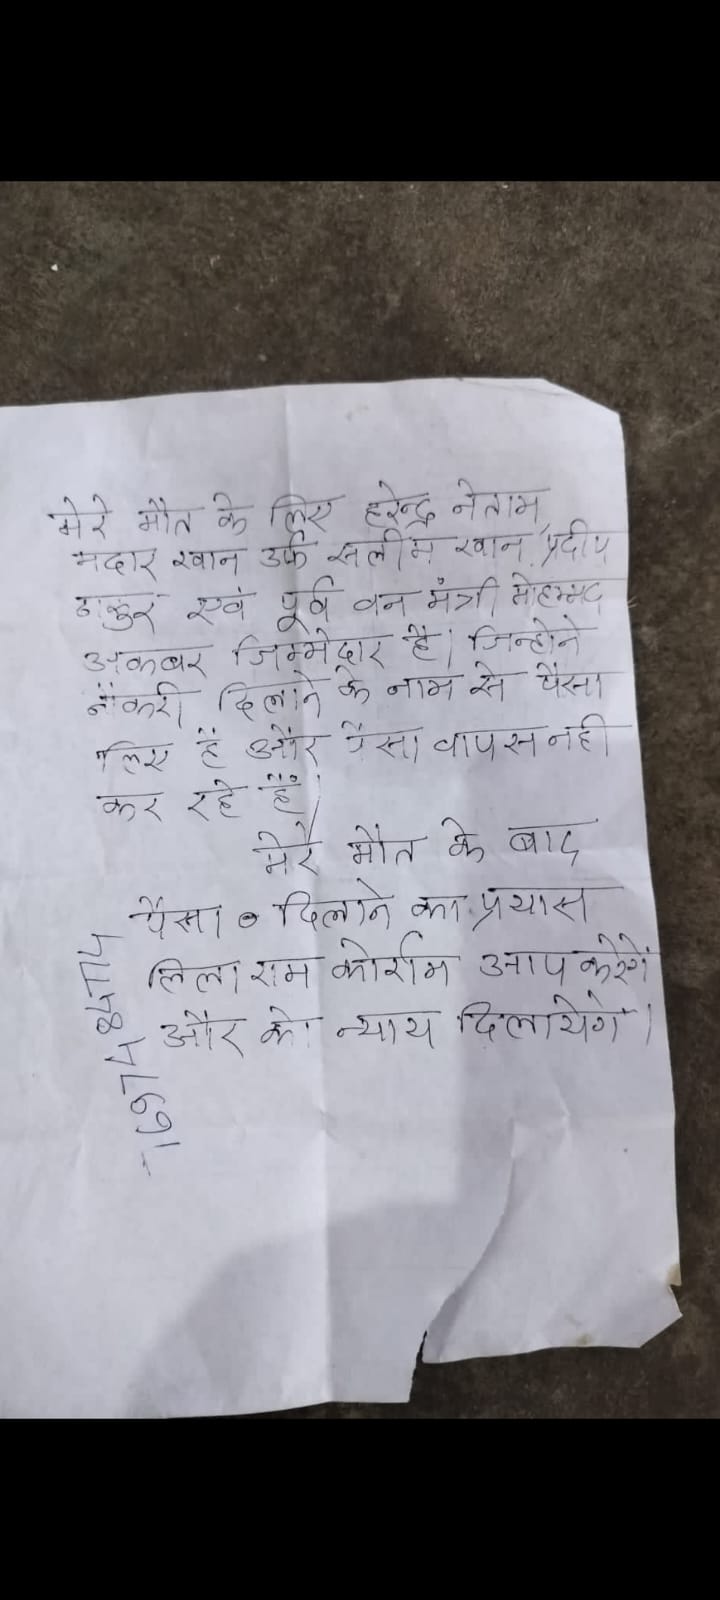 मेरे मौत के लिए हरेन्द्र नेताम,
मदार खान उर्फ सलीम खान, प्रदीप
ठाकुर एवं पूर्व वन मंत्री मोहम्मद
अकबर जिम्मेदार है। जिन्होने
नौकरी दिलाने के नाम से पैसा
लिए हैं और पैसा वापस नही
कर रहे हैं।
मेरे मौत के बाद
पैसा दिलाने का प्रयास
लिला राम कोर्राम आप करेगें
और को न्याय दिलायेगे।